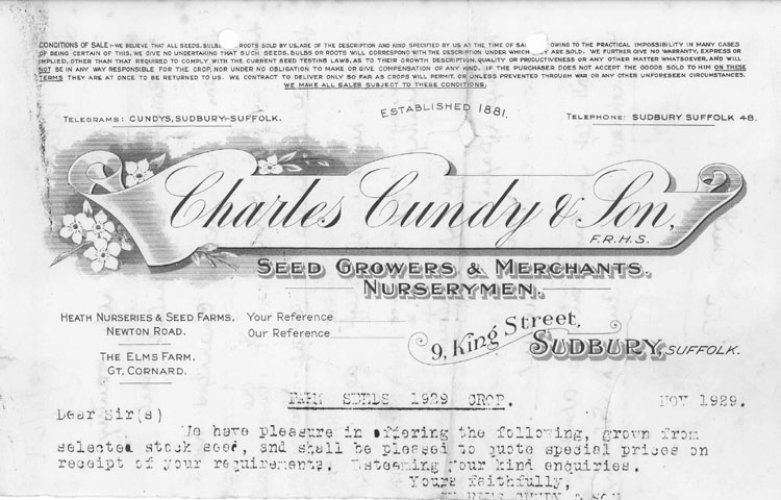 CONDITIONS OF SALE:—WE BELIEVE THAT ALL SEEDS, BULBS ROOTS SOLD BY US, ARE OF THE DESCRIPTION AND KIND SPECIFIED BY US AT THE TIME OF OWING TO THE PRACTICAL IMPOSSIBILITY IN MANY CASES
OF BEING CERTAIN OF THIS, WE GIVE NO UNDERTAKING THAT SUCH SEEDS, BULBS OR ROOTS WILL CORRESPOND WITH THE DESCRIPTION UNDER WHICH ARE SOLD. WE FURTHER GIVE NO WARRANTY, EXPRESS OR
IMPLIED, OTHER THAN THAT REQUIRED TO COMPLY WITH THE CURRENT SEED TESTING LAWS, AS TO THEIR GROWTH DESCRIPTION, QUALITY OR PRODUCTIVENESS OR ANY OTHER MATTER WHATSOEVER, AND WILL
NOT BE IN ANY WAY RESPONSIBLE FOR THE CROP, NOR UNDER NO OBLIGATION TO MAKE OR GIVE COMPENSATION OF ANY KIND. IF THE PURCHASER DOES NOT ACCEPT THE GOODS SOLD TO HIM ON THESE
TERMS THEY ARE AT ONCE TO BE RETURNED TO US. WE CONTRACT TO DELIVER ONLY SO FAR AS CROPS WILL PERMIT, OR UNLESS PREVENTED THROUGH WAR OR ANY OTHER UNFORESEEN CIRCUMSTANCES.
WE MAKE ALL SALES SUBJECT TO THESE CONDITIONS.
ESTABLISHED 1881.
TELEGRAMS: CUNDYS, SUDBURY-SUFFOLK.
TELEPHONE: SUDBURY SUFFOLK 48.
Charles Cundy & Son,
F.R.H.S.
SEED GROWERS & MERCHANTS.
NURSERYMEN.
HEATH NURSERIES & SEED FARMS,
NEWTON ROAD.
THE ELMS FARM,
GT. CORNARD.
Your Reference
Our Reference
9, King Street,
SUDBURY, SUFFOLK.
SEEDS 1929 CROP.
NOV 1929.
Dear Sir(s)
We have pleasure in offering the following, grown from
selected stock seed, and shall be pleased to quote special prices on
receipt of your requirements. Esteeming your kind enquiries.
Yours faithfully,
CUNDY & SON